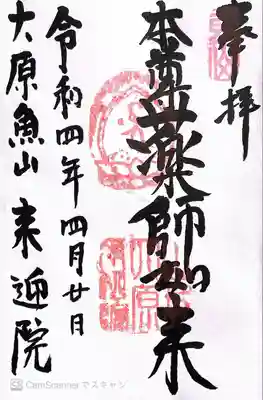 奉拝
本尊薬師如来
令和四年四月廿日
大原魚山来迎院
CamScannerでスキャン